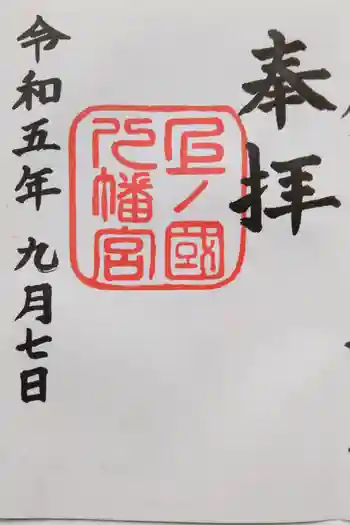 奉拝
丘ノ國
八幡宮
令和五年九月七日